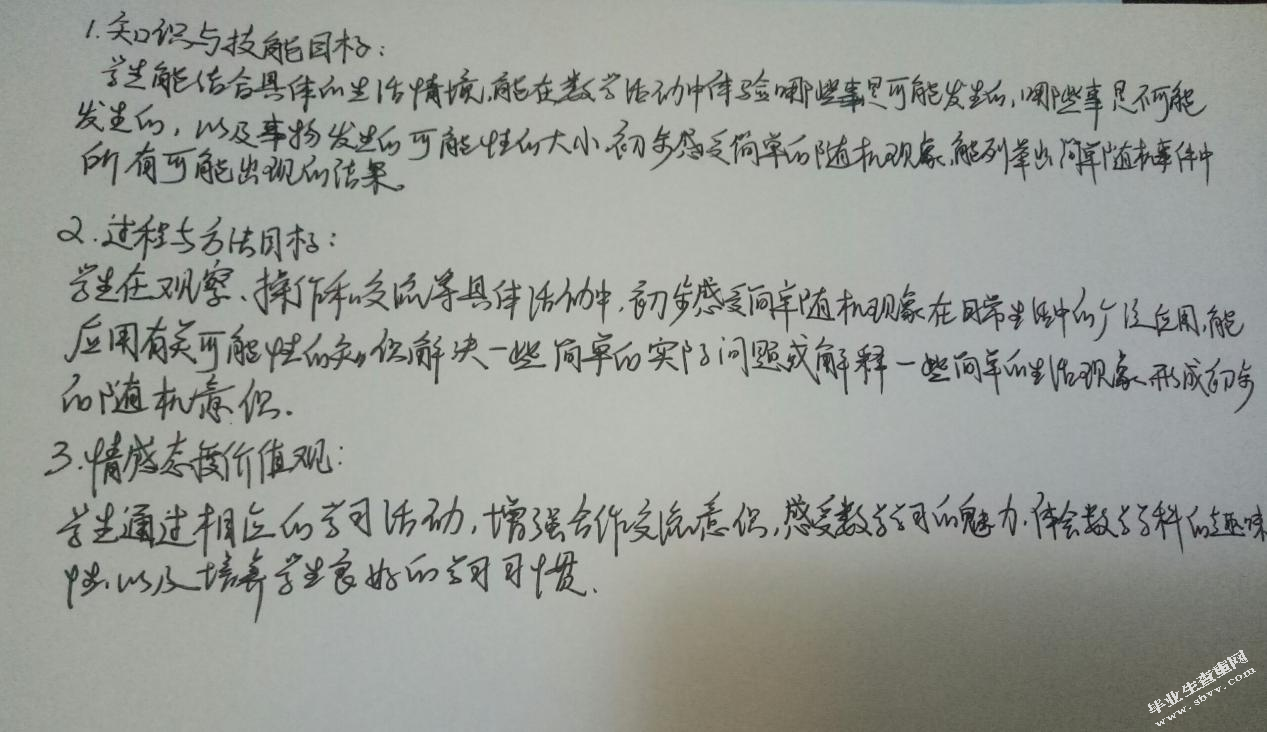 1.知识与技能目标：
学生能结合具体的生活情境,能在数学活动中体验哪些事是可能发生的,哪些事是不可能
发生的，以及事物发生的可能性的大小,初步感受简单的随机现象,能列举出简单随机事件中
所有可能出现的结果。
2.过程与方法目标：
学生在观察、操作和交流等具体活动中,初步感受简单随机现象在日常生活中的广泛应用,能
应用有关可能性的知识解决一些简单的实际问题或解释一些简单的生活现象,形成初步
的随机意识.
3.情感态度价值观：
学生通过相应的学习活动,增强合作交流意识,感受数学学习的魅力,体会数学学科的趣味
性,以及培养学生良好的学习习惯.
毕业生查重网
www.sbvv.com